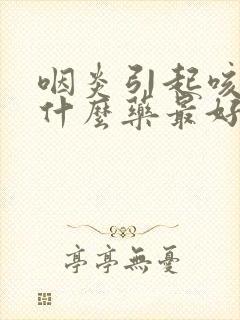 咽炎引起咳
什麼藥最好
亭亭無憂